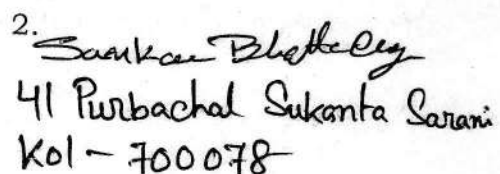 2.
Sankar Bhatta
41 Purbachal Sukanta Sarani
Kol - 700078